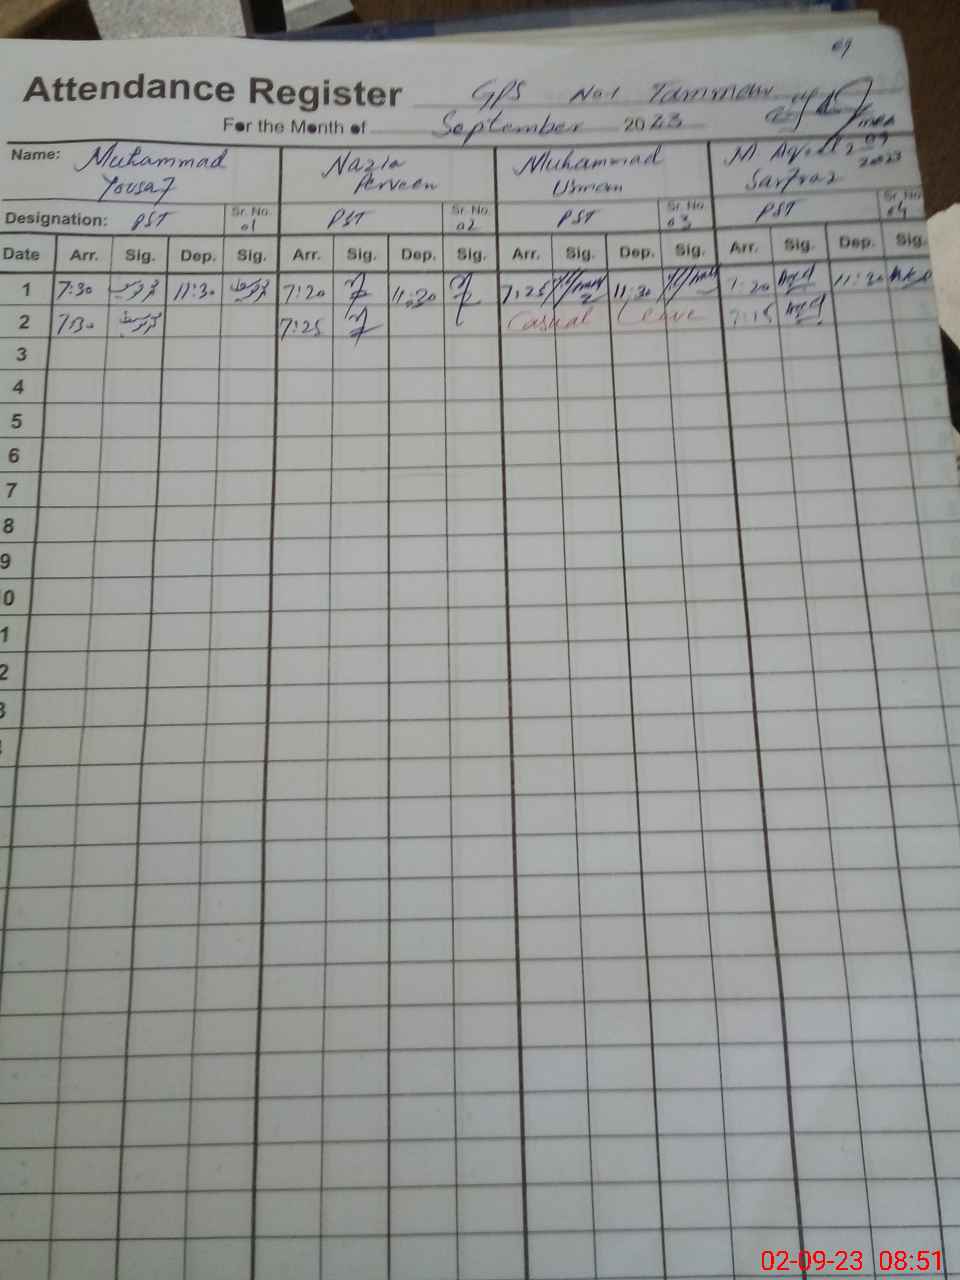 69
Attendance Register GPS No 1 Tamman
For the Month of September 2023
Name: Muhammad Yousaf Nazia Perveen Muhammad Usman M. Aqeel Sarfraz
Designation: PST Sr. No. 01 PST Sr. No. 02 PST Sr. No. 03 PST Sr. No. 04
Date Arr. Sig. Dep. Sig. Arr. Sig. Dep. Sig. Arr. Sig. Dep. Sig. Arr. Sig. Dep. Sig.
1 7:30 محمد یوسف 11:30 محمد یوسف 7:20 11:30 7:25 11:30 7:20 11:30
2 7:30 محمد یوسف 7:25 Casual Leave 7:15
3
4
5
6
7
8
9
0
1
2
3
02-09-23 08:51